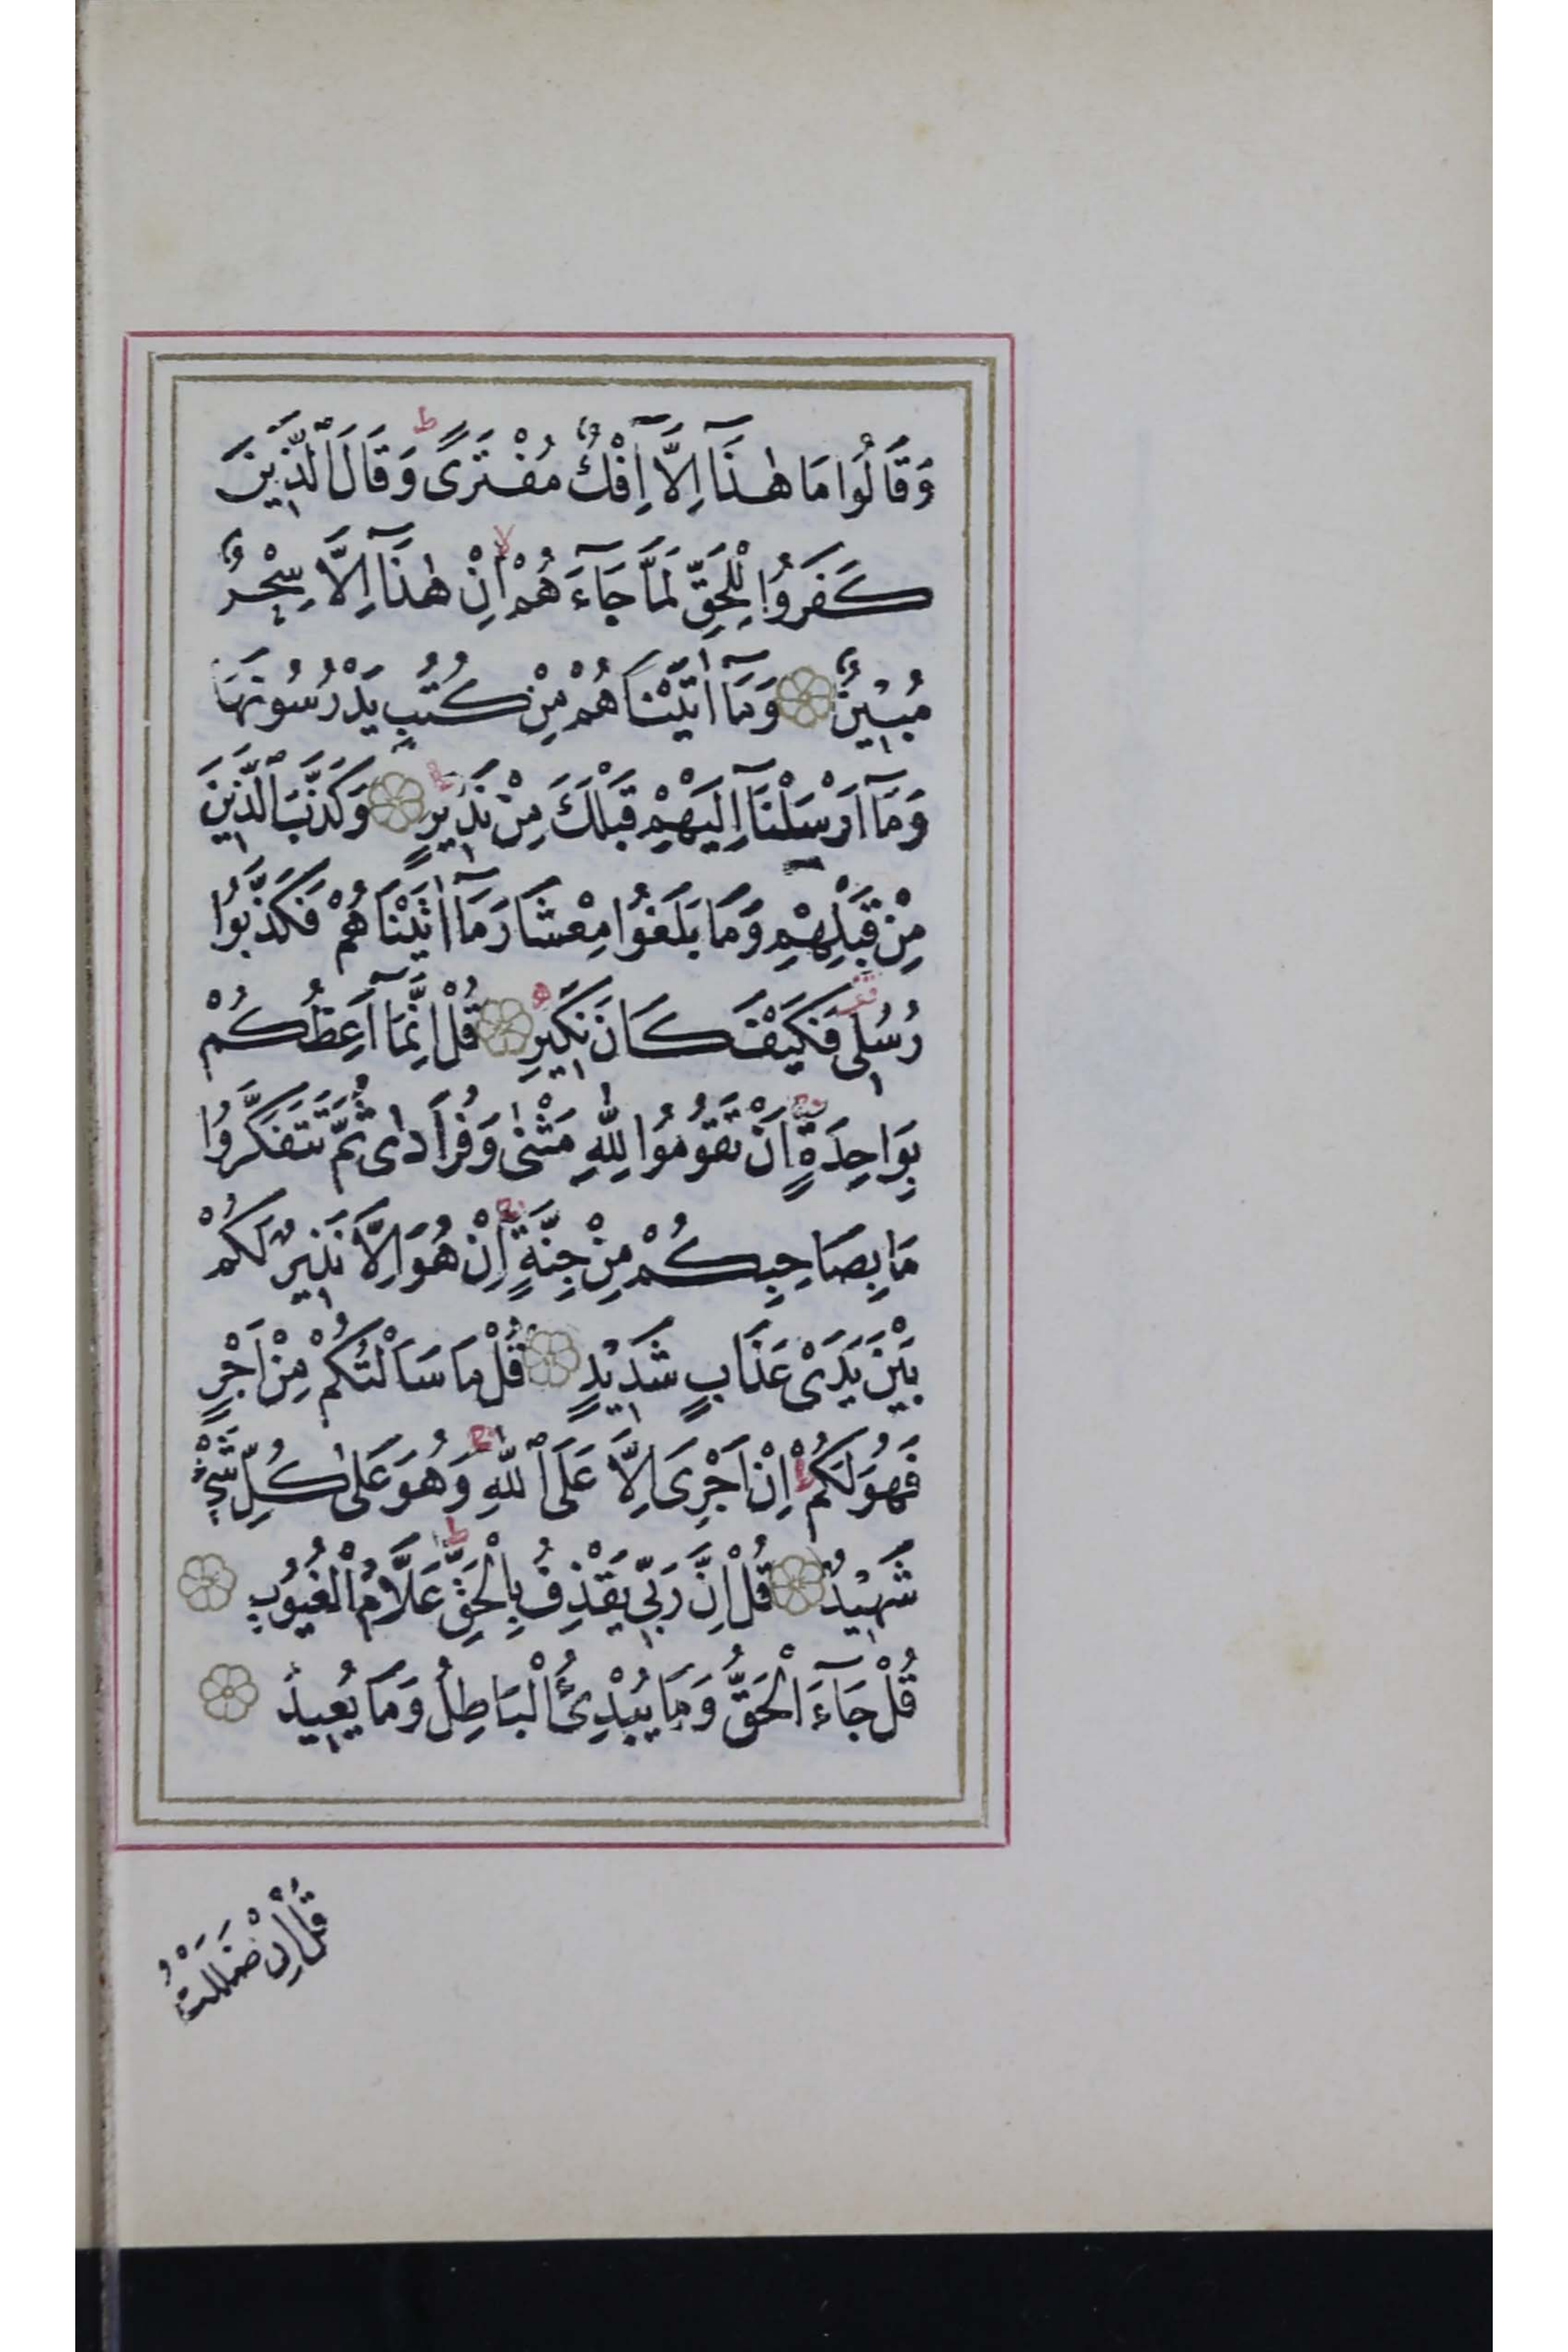 وَقَالُوا مَا هٰذَآ اِلَّآ اِفْكٌ مُفْتَرًى ط وَقَالَ الَّذِينَ
كَفَرُوا لِلْحَقِّ لَمَّا جَآءَهُمْ لا اِنْ هٰذَآ اِلَّا سِحْرٌ
مُبِينٌ وَمَآ اٰتَيْنَاهُمْ مِنْ كُتُبٍ يَدْرُسُونَهَا
وَمَآ اَرْسَلْنَآ اِلَيْهِمْ قَبْلَكَ مِنْ نَذِيرٍ وَكَذَّبَ الَّذِينَ
مِنْ قَبْلِهِمْ وَمَا بَلَغُوا مِعْشَارَ مَآ اٰتَيْنَاهُمْ فَكَذَّبُوا
رُسُلِى فَكَيْفَ كَانَ نَكِيرِ قُلْ اِنَّمَآ اَعِظُكُمْ
بِوَاحِدَةٍ اَنْ تَقُومُوا لِلّٰهِ مَثْنٰى وَفُرَادٰى ثُمَّ تَتَفَكَّرُوا
مَا بِصَاحِبِكُمْ مِنْ جِنَّةٍ اِنْ هُوَ اِلَّا نَذِيرٌ لَكُمْ
بَيْنَ يَدَىْ عَذَابٍ شَدِيدٍ قُلْ مَا سَاَلْتُكُمْ مِنْ اَجْرٍ
فَهُوَ لَكُمْ اِنْ اَجْرِىَ اِلَّا عَلَى اللّٰهِ وَهُوَ عَلٰى كُلِّ شَىْءٍ
شَهِيدٌ قُلْ اِنَّ رَبِّى يَقْذِفُ بِالْحَقِّ ط عَلَّامُ الْغُيُوبِ
قُلْ جَآءَ الْحَقُّ وَمَا يُبْدِئُ الْبَاطِلُ وَمَا يُعِيدُ
قُلْ اِنْ ضَلَلْتُ